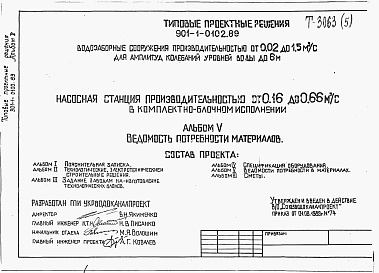 Т-3063 (5)
ТИПОВЫЕ ПРОЕКТНЫЕ РЕШЕНИЯ
901-1-0102.89
ВОДОЗАБОРНЫЕ СООРУЖЕНИЯ ПРОИЗВОДИТЕЛЬНОСТЬЮ ОТ 0.02 ДО 1,5 М³/С
ДЛЯ АМПЛИТУД КОЛЕБАНИЙ УРОВНЕЙ ВОДЫ ДО 6М
НАСОСНАЯ СТАНЦИЯ ПРОИЗВОДИТЕЛЬНОСТЬЮ ОТ 0.16 ДО 0,66 М³/С
В КОМПЛЕКТНО-БЛОЧНОМ ИСПОЛНЕНИИ
АЛЬБОМ V
ВЕДОМОСТЬ ПОТРЕБНОСТИ МАТЕРИАЛОВ.
СОСТАВ ПРОЕКТА:
АЛЬБОМ I ПОЯСНИТЕЛЬНАЯ ЗАПИСКА.
АЛЬБОМ II ТЕХНОЛОГИЧЕСКИЕ, ЭЛЕКТРОТЕХНИЧЕСКИЕ
СТРОИТЕЛЬНЫЕ РЕШЕНИЯ.
АЛЬБОМ III ЗАДАНИЕ ЗАВОДАМ НА ИЗГОТОВЛЕНИЕ
ТЕХНОЛОГИЧЕСКИХ БЛОКОВ.
АЛЬБОМ IV СПЕЦИФИКАЦИЯ ОБОРУДОВАНИЯ.
АЛЬБОМ V ВЕДОМОСТИ ПОТРЕБНОСТИ В МАТЕРИАЛАХ.
АЛЬБОМ VI СМЕТЫ.
РАЗРАБОТАН ГПИ УКРВОДОКАНАЛПРОЕКТ
ДИРЕКТОР В.Н.ЯКИМЕНКО
ГЛАВНЫЙ ИНЖЕНЕР И.Т.Н. Н.В.ПИСАНКО
НАЧАЛЬНИК ОТДЕЛА М.Я.ВОЛОШИН
ГЛАВНЫЙ ИНЖЕНЕР ПРОЕКТА А.Г.КОВАЛЕВ
УТВЕРЖДЕН И ВВЕДЕН В ДЕЙСТВИЕ
В/О „СОЮЗВОДОКАНАЛПРОЕКТ"
ПРИКАЗ ОТ 04.08.1989г. №74
ПРИВЯЗАН
Типовые проектные решения
901-1-0102.89 Альбом V